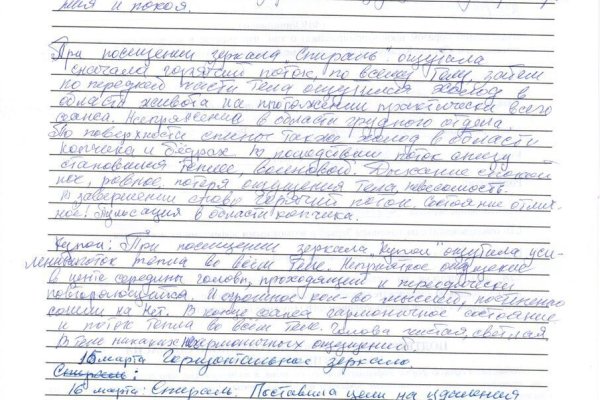 ния и покоя.
При посещении зеркала "Спираль" ощутила
сначала горячий поток, по всему телу, затем
по передней части тела ощущался холод в
области живота на протяжении практически всего
сеанса. Напряжение в области грудного отдела.
По поверхности спины также холод в области
копчика и бёдрах. В последствии поток снизу
становился теплее, волновой. Дыхание спокой
ное, ровное, потеря ощущения тела, невесомость.
В завершении снова горячий поток. Состояние отлич-
ное. Пульсация в области копчика.
Купол: При посещении зеркала "Купол" ощутила уси-
ление поток тепла во всём теле. Неприятное ощущение
в центе середины головы, проходящий и переодически
повторяющийся. И огромное кол-во мыслей, постепенно
сошли на нет. В конце сеанса гармоничное состояние
и поток тепла во всём теле. Голова чистая, светлая,
В теле никаких негармоничных ощущений.
15 марта Горизонтальное зеркало.
Спираль:
16 марта: Спираль. Поставила цели на удаления